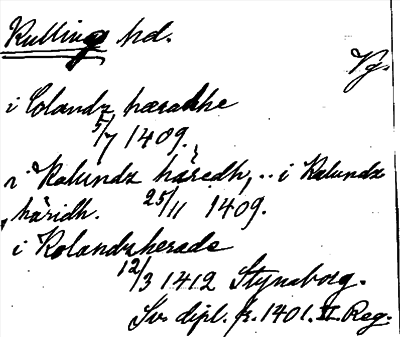 Kulling hd.
Vg.
i Colandz hærakhe
5/7 1409.
i Kalundz häredh, .. i Kalundz
häridh. 25/11 1409.
i Kolandzherade
12/3 1412 Stynaborg.
Sv. dipl. fr. 1401. II. Reg.